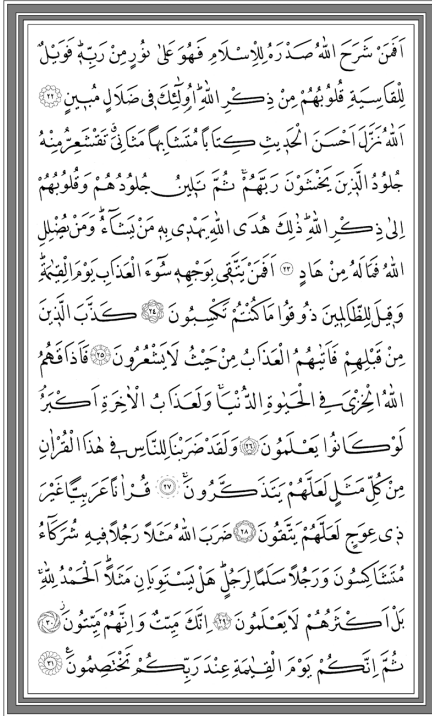 اَفَمَنْ شَرَحَ اللّٰهُ صَدْرَهُ لِلْاِسْلَامِ فَهُوَ عَلٰى نُورٍ مِنْ رَبِّهٖۜ فَوَيْلٌ
لِلْقَاسِيَةِ قُلُوبُهُمْ مِنْ ذِكْرِ اللّٰهِۜ اُو۬لٰٓئِكَ فٖي ضَلَالٍ مُبٖينٍ ﴿٢٢﴾
اَللّٰهُ نَزَّلَ اَحْسَنَ الْحَدٖيثِ كِتَابًا مُتَشَابِهًا مَثَانِيَۗ تَقْشَعِرُّ مِنْهُ
جُلُودُ الَّذٖينَ يَخْشَوْنَ رَبَّهُمْۚ ثُمَّ تَلٖينُ جُلُودُهُمْ وَقُلُوبُهُمْ
اِلٰى ذِكْرِ اللّٰهِۜ ذٰلِكَ هُدَى اللّٰهِ يَهْدٖي بِهٖ مَنْ يَشَٓاءُۜ وَمَنْ يُضْلِلِ
اللّٰهُ فَمَا لَهُ مِنْ هَادٍ ﴿٢٣﴾ اَفَمَنْ يَتَّقٖي بِوَجْهِهٖ سُٓوءَ الْعَذَابِ يَوْمَ الْقِيٰمَةِۜ
وَقٖيلَ لِلظَّالِمٖينَ ذُوقُوا مَا كُنْتُمْ تَكْسِبُونَ ﴿٢٤﴾ كَذَّبَ الَّذٖينَ
مِنْ قَبْلِهِمْ فَاَتٰيهُمُ الْعَذَابُ مِنْ حَيْثُ لَا يَشْعُرُونَ ﴿٢٥﴾ فَاَذَاقَهُمُ
اللّٰهُ الْخِزْيَ فِي الْحَيٰوةِ الدُّنْيَاۚ وَلَعَذَابُ الْاٰخِرَةِ اَكْبَرُۢ
لَوْ كَانُوا يَعْلَمُونَ ﴿٢٦﴾ وَلَقَدْ ضَرَبْنَا لِلنَّاسِ فٖي هٰذَا الْقُرْاٰنِ
مِنْ كُلِّ مَثَلٍ لَعَلَّهُمْ يَتَذَكَّرُونَۚ ﴿٢٧﴾ قُرْاٰنًا عَرَبِيًّا غَيْرَ
ذٖي عِوَجٍ لَعَلَّهُمْ يَتَّقُونَ ﴿٢٨﴾ ضَرَبَ اللّٰهُ مَثَلًا رَجُلًا فٖيهِ شُرَكَٓاءُ
مُتَشَاكِسُونَ وَرَجُلًا سَلَمًا لِرَجُلٍۜ هَلْ يَسْتَوِيَانِ مَثَلًاۜ اَلْحَمْدُ لِلّٰهِۚ
بَلْ اَكْثَرُهُمْ لَا يَعْلَمُونَ ﴿٢٩﴾ اِنَّكَ مَيِّتٌ وَاِنَّهُمْ مَيِّتُونَۘ ﴿٣٠﴾
ثُمَّ اِنَّكُمْ يَوْمَ الْقِيٰمَةِ عِنْدَ رَبِّكُمْ تَخْتَصِمُونَ ﴿٣١﴾